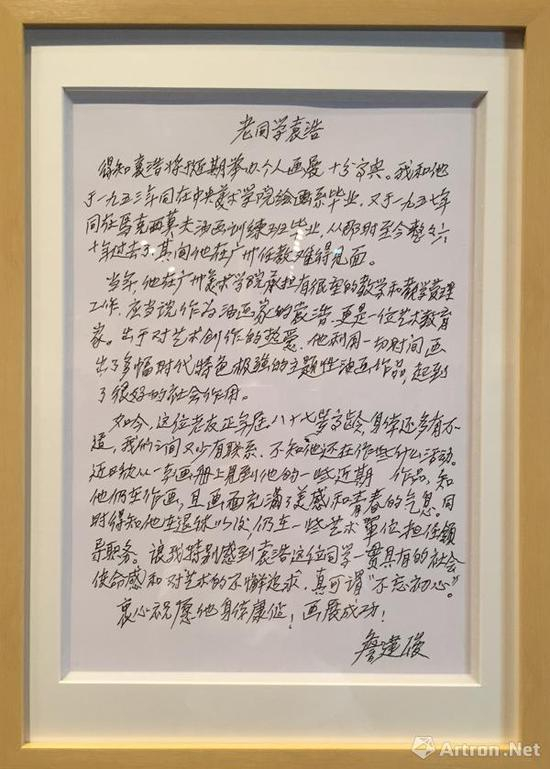 老同学袁浩
得知袁浩将于近期举办个人画展十分高兴。我和他
于一九五三年同在中央美术学院绘画系毕业，又于一九五七年
同在马克西莫夫油画训练班毕业，从那时至今整整六
十年过去了，其间他在广州任教难得见面。
当年，他在广州美术学院承担有很重的教学和教学管理
工作，应当说作为油画家的袁浩，更是一位艺术教育
家。出于对艺术创作的热爱，他利用一切时间画
出了多幅时代特色极强的主题性油画作品，起到
了很好的社会作用。
如今，这位老友正年在八十七岁高龄，身体还多有不
适，我们之间又少有联系，不知他还在作些什么活动。
近日欣从一本画册上见到他的一些近期 作品，知
他仍在作画，且画面充满了美感和青春的气息。同
时得知他在退休以后，仍在一些艺术单位担任领
导职务。让我特别感到袁浩这位同学一贯具有的社会
使命感和对艺术的不懈追求，真可谓“不忘初心”。
衷心祝愿他身体康健！画展成功！
詹建俊
Artron.Net